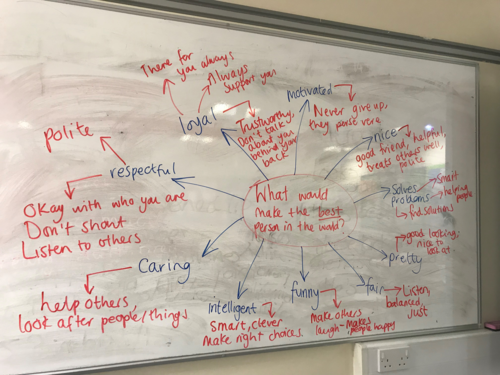 What would
make the best
person in the world?
loyal
There for
you always
Always
support you
Trustworthy,
Don't talk
about you
behind your
back
motivated
Never give up,
they perse vere
nice
good friend, helpful,
treats others well,
polite
Solves
problems
Smart
helping
people
find solutions
pretty
good looking,
nice to
look at
fair
Listen,
balanced,
just
funny
make others
laugh - makes
people happy
intelligent
Smart, clever
make right choices.
Caring
help others,
look after people/things
respectful
polite
Okay with who you are
Don't shout
Listen to others